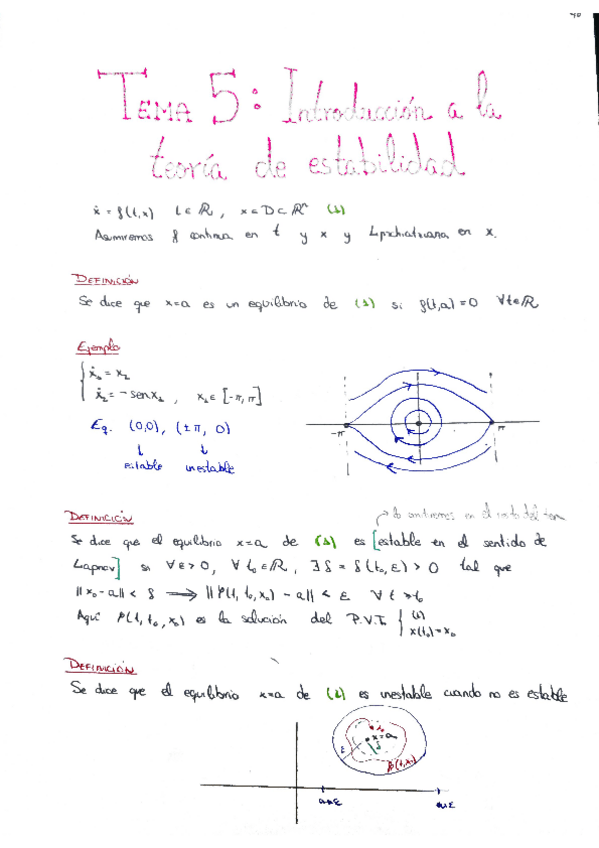 TEMA 5: Introducción a la
teoría de estabilidad
ẋ = f(t,x) t ∈ ℝ, x ∈ D ⊂ ℝⁿ (1)
Asumiremos f continua en t y x y Lipschitziana en x.
DEFINICIÓN
Se dice que x=a es un equilibrio de (1) si f(t,a)=0 ∀t∈ℝ
Ejemplo
ẋ₁ = x₂
ẋ₂ = -sen x₁, x₁ ∈ [-π, π]
Eq. (0,0), (±π, 0)
↓ ↓
estable inestable
-π π
DEFINICIÓN
lo omitiremos en el resto del tema
Se dice que el equilibrio x=a de (1) es [estable en el sentido de
Liapnov] si ∀ε>0, ∀t₀∈ℝ, ∃δ = δ(t₀,ε) > 0 tal que
||x₀-a|| < δ → ||φ(t,t₀,x₀) - a|| < ε ∀t>t₀
Aquí φ(t,t₀,x₀) es la solución del P.V.I. { (1)
x(t₀)=x₀
DEFINICIÓN
Se dice que el equilibrio x=a de (1) es inestable cuando no es estable
x=a
ε δ